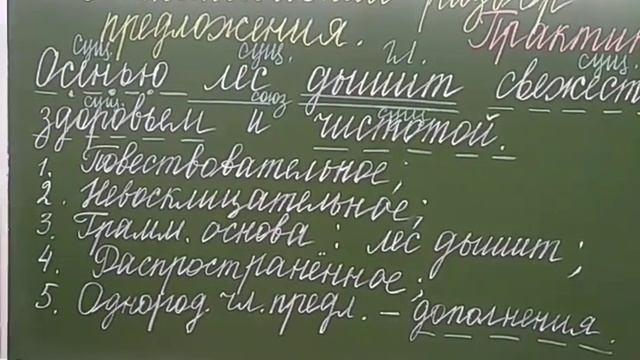 разбор
предложения. Практик
сущ. сущ. гл. сущ.
Осенью лес дышит свежест
сущ. союз сущ.
здоровьем и чистотой.
1. Повествовательное;
2. Невосклицательное;
3. Грамм. основа: лес дышит;
4. Распространённое;
5. Однород. чл. предл. – дополнения.